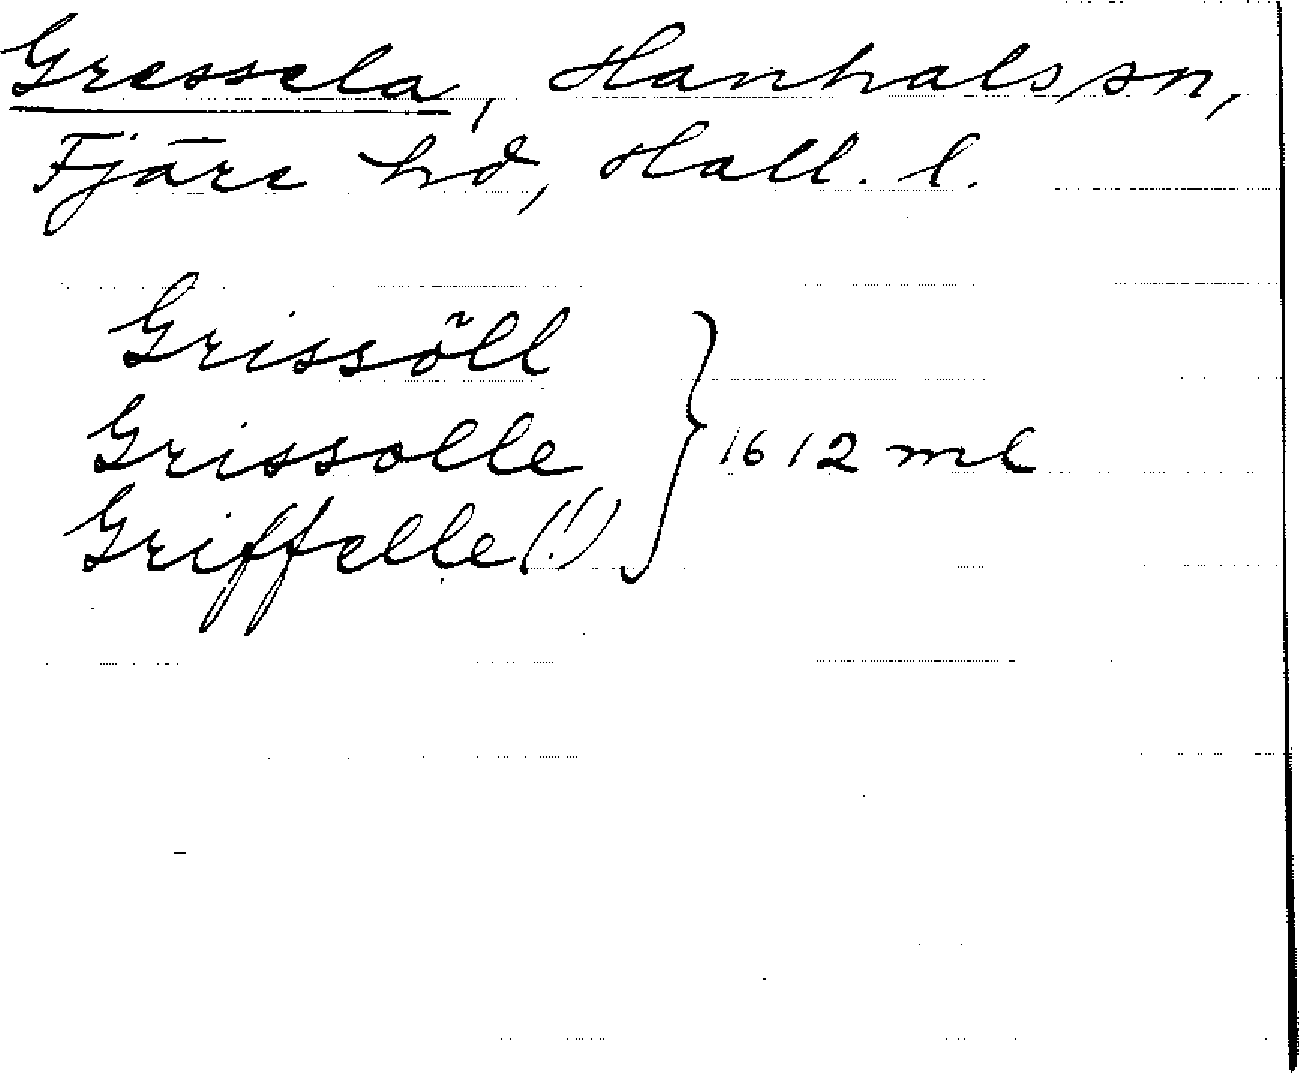 Gressela, Hanhals sn,
Fjäre hd, Hall. l.
Grissöll
Grissolle } 1612 ml
Griffelle (!)